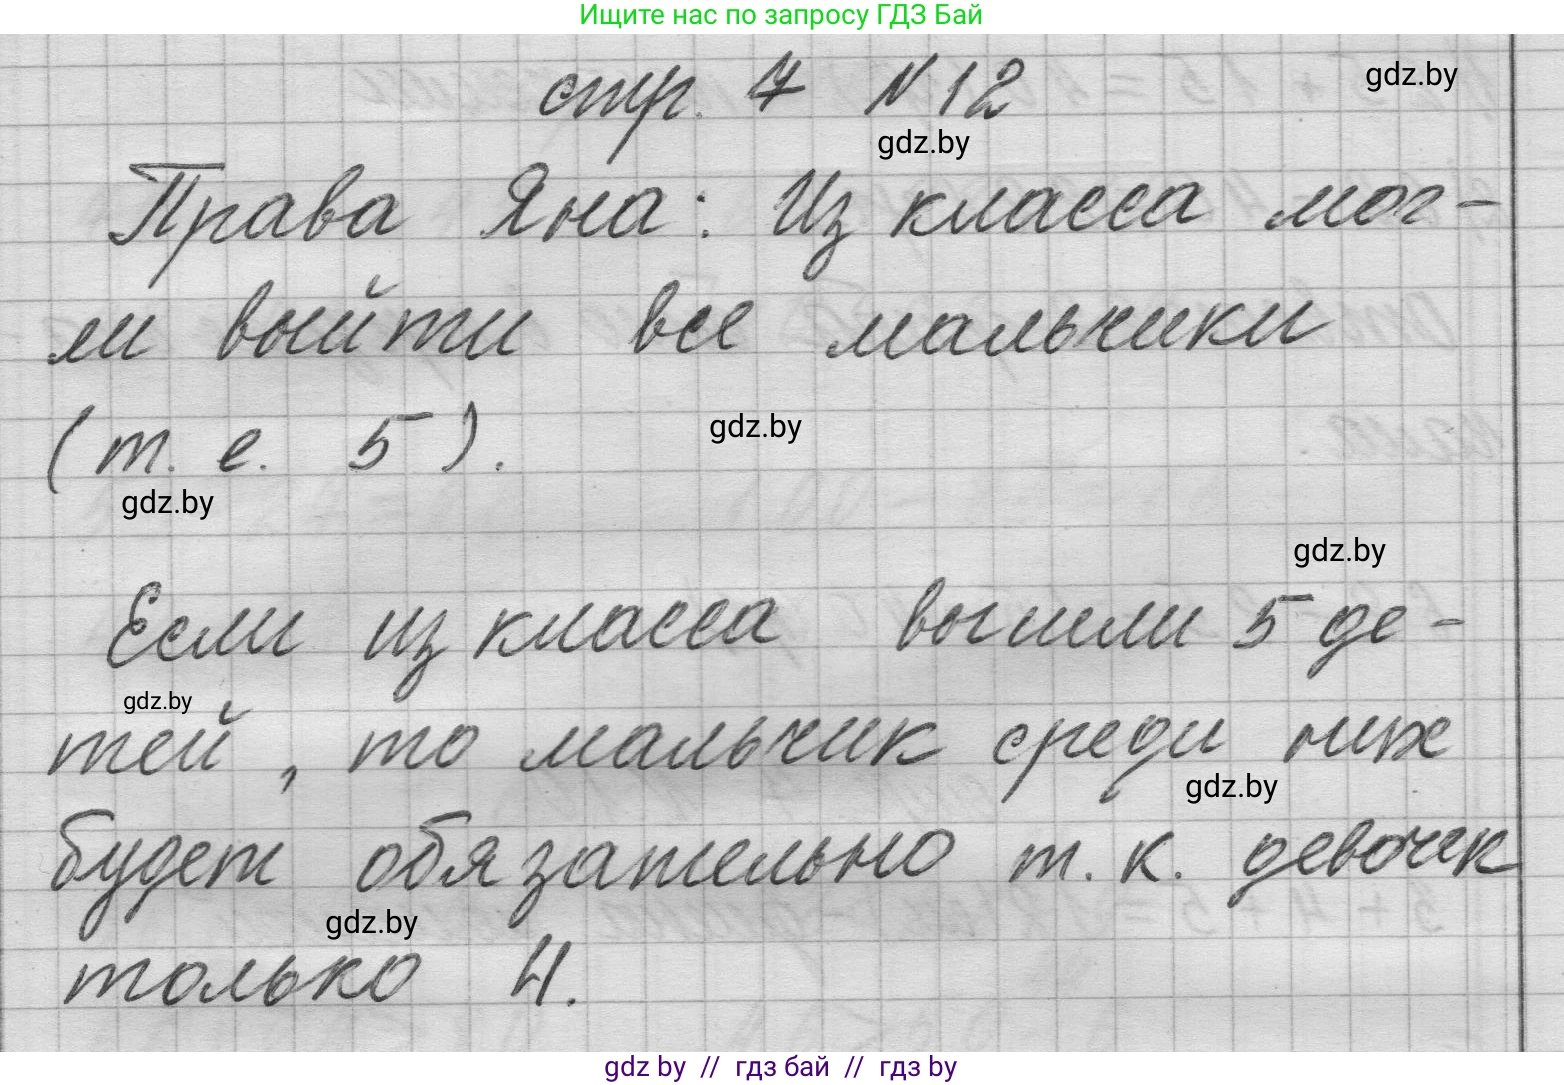 Ищите нас по запросу ГДЗ Бай
стр. 7 N 12
gdz.by
gdz.by
Права Яна: Из класса мог-
ли выйти все мальчики
(т. е. 5).
gdz.by
gdz.by
gdz.by
Если из класса вышли 5 де-
gdz.by
тей, то мальчик среди них
gdz.by
будет обязательно т. к. девочк
gdz.by
только 4.
gdz by // гдз бай // гдз by